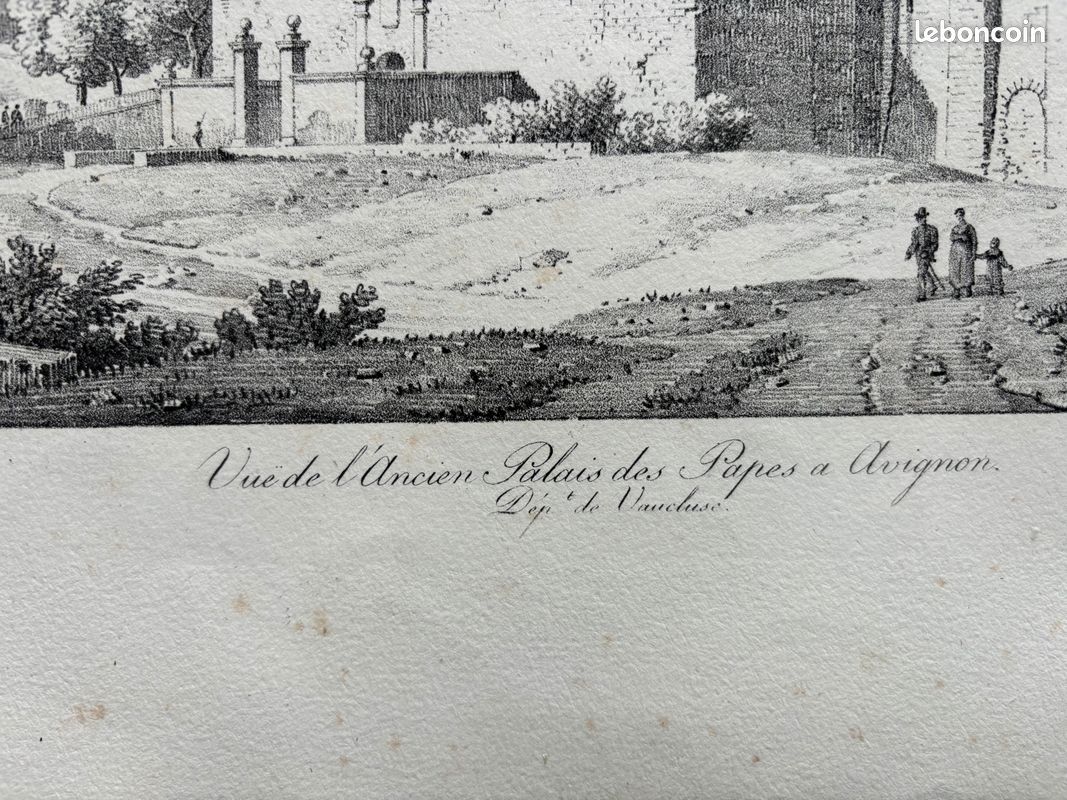 leboncoin
Vuë de l'Ancien Palais des Papes a Avignon.
Dép.t de Vaucluse.